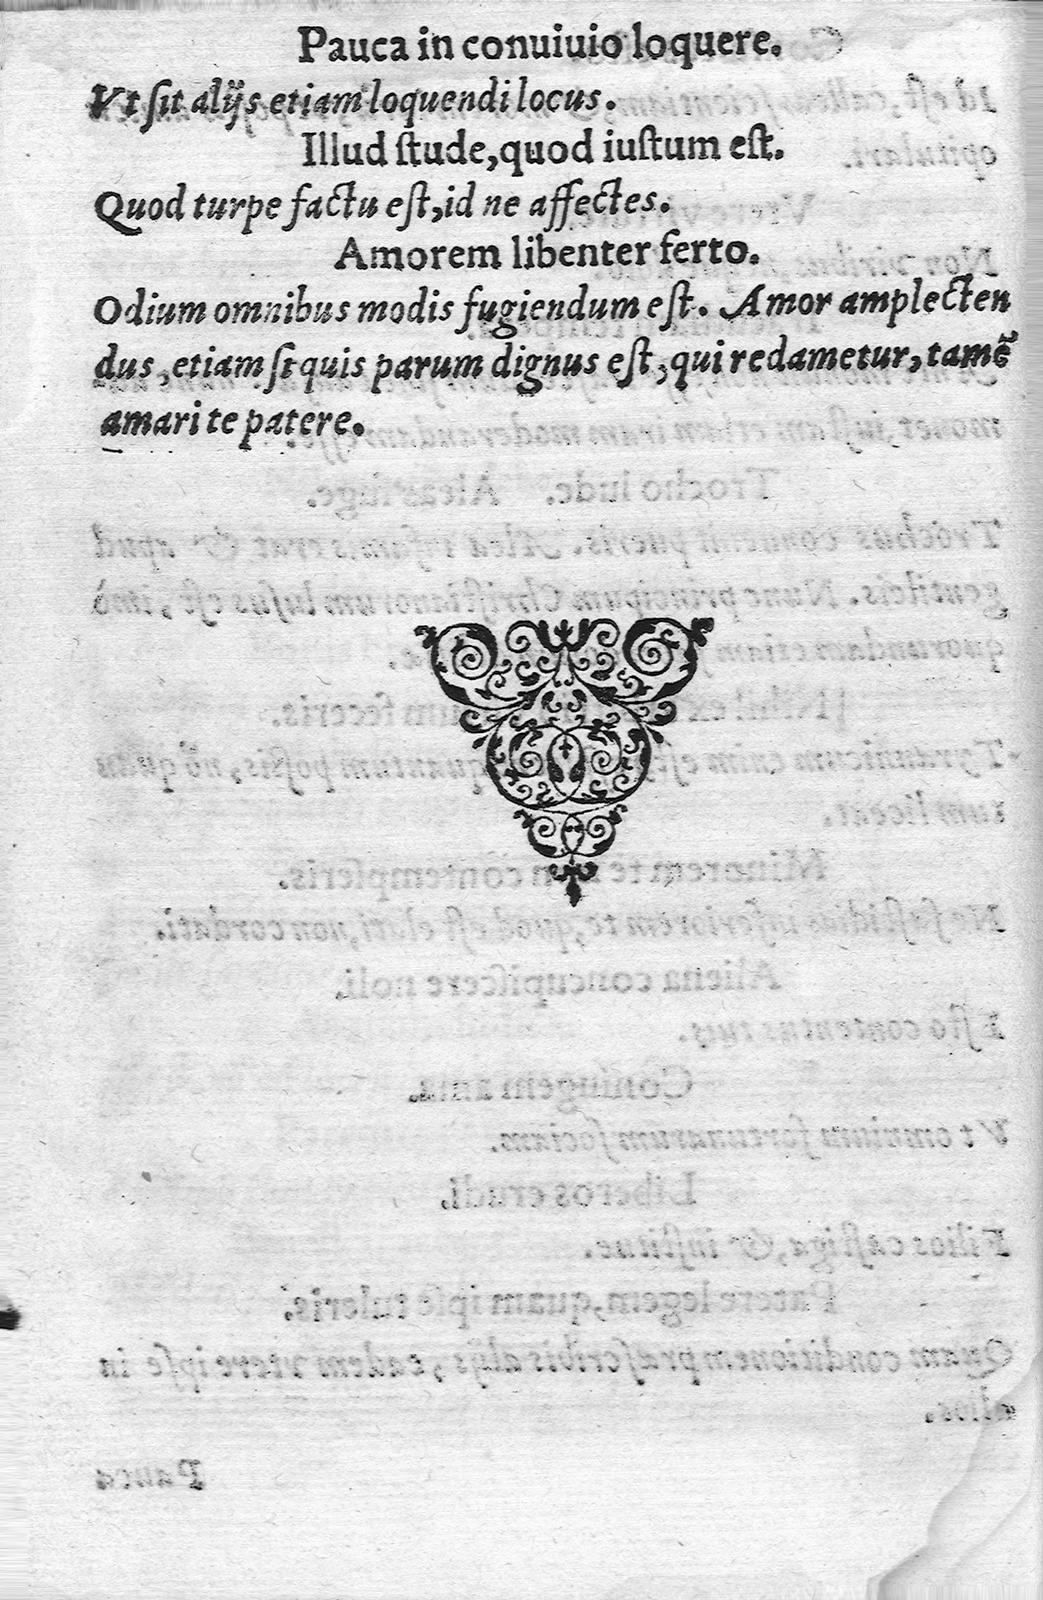 Pauca in conuiuio loquere.
Vt ſit alijs etiam loquendi locus.
Illud ſtude, quod iuſtum eſt.
Quod turpe factu eſt, id ne affectes.
Amorem libenter ferto.
Odium omnibus modis fugiendum eſt. Amor amplecten
dus, etiam ſi quis parum dignus eſt, qui redametur, tamẽ
amari te patere.